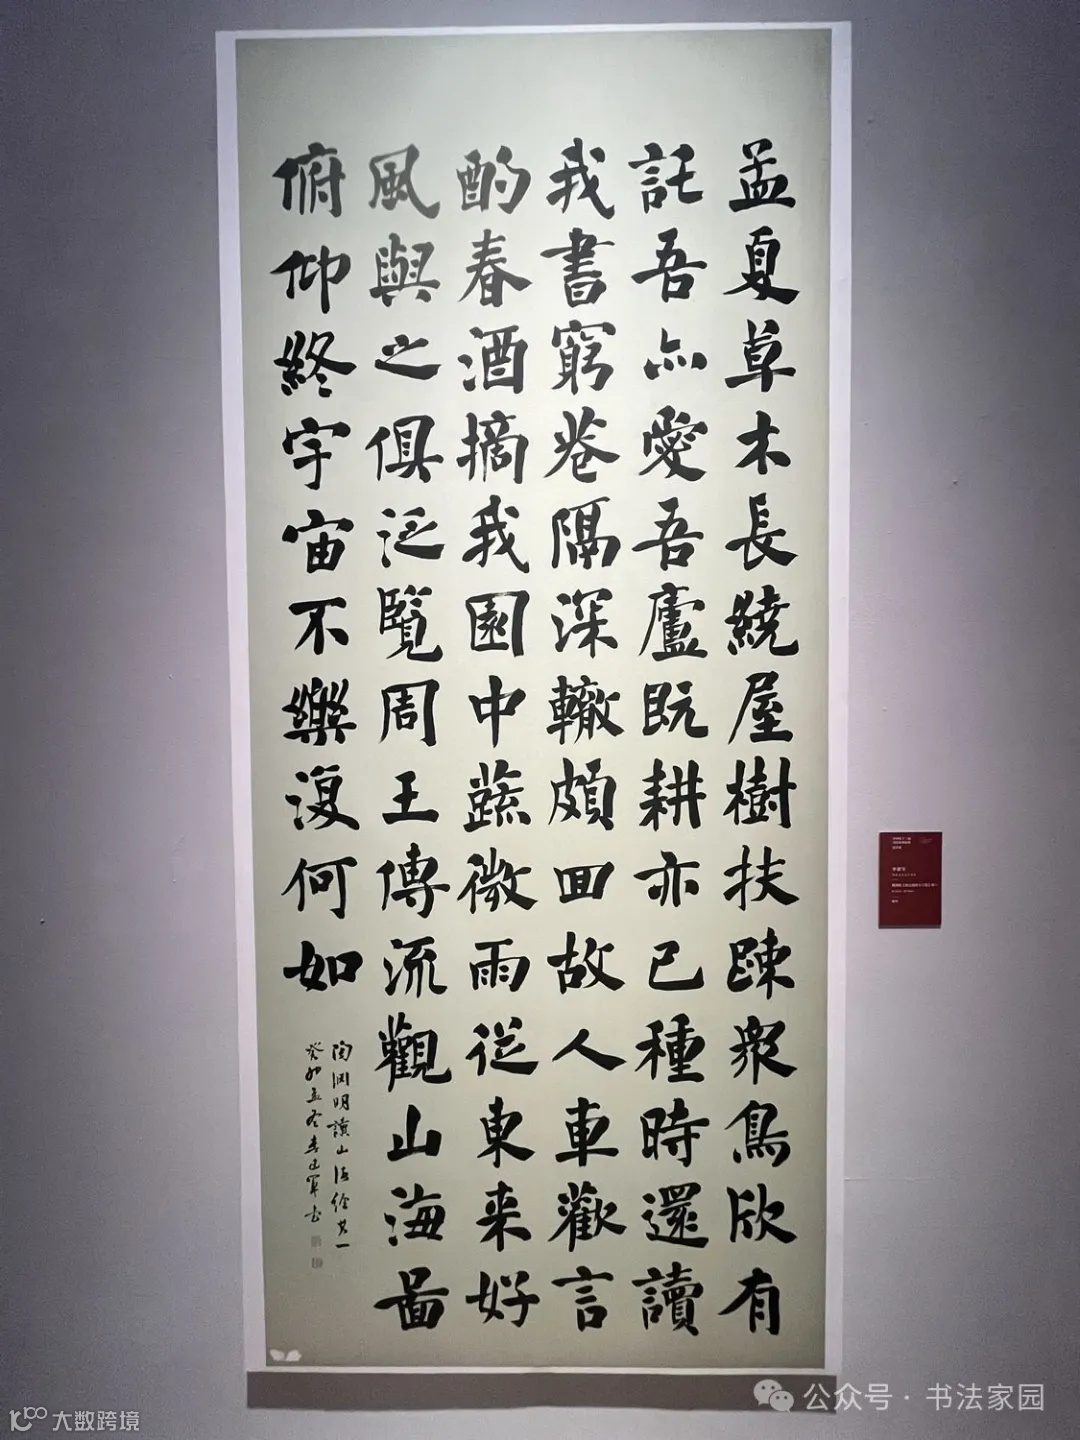 孟夏草木長繞屋樹扶踈衆鳥欣有
託吾亦愛吾廬既耕亦已種時還讀
我書窮巷隔深轍頗回故人車歡言
酌春酒摘我園中蔬微雨從東来好
風與之俱泛覽周王傳流觀山海啚
俯仰終宇宙不樂復何如
陶渊明讀山海經其一
癸卯孟冬李建軍书
公众号·书法家园
大数跨境